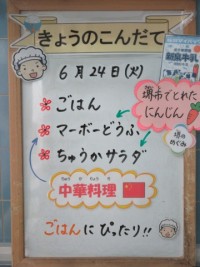 きょうのこんだて
6月24日(火)
ごはん
堺市でとれた
にんじん
マーボーどうふ
ちゅうかサラダ
ちゅうか りょうり
中華料理
ごはんにぴったり!!